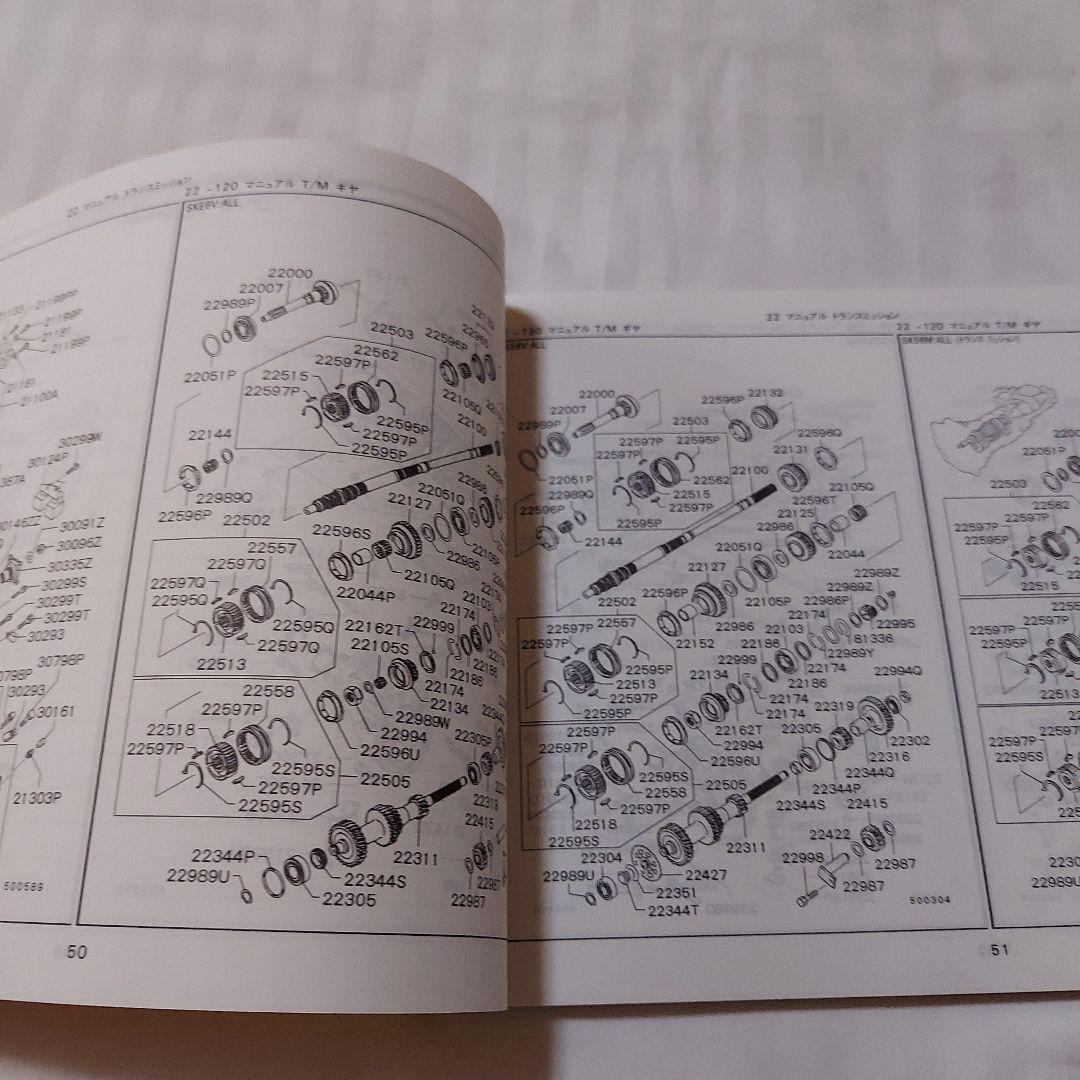 22 マニュアル トランスミッション
22 -120 マニュアル T/M ギヤ
SKE6V:ALL
21199PP
21199P
21181
21199P
21181
21100A
30299W
30124P
30091Z
30096Z
30335Z
30299S
30299T
30299T
30293
30798P
30293
30161
21303P
500589
22000
22007
22989P
22051P
22503
22562
22597P
22515
22597P
22595P
22597P
22595P
22596P
22105Q
22100
22144
22989Q
22596P
22502
22051Q
22127
22986
22596S
22986
22105P
22105Q
22044P
22557
22597Q
22597Q
22595Q
22595Q
22597Q
22513
22103
22174
22999
22162T
22105S
22186
22186
22174
22134
22989W
22994
22596U
22305P
22558
22597P
22518
22597P
22595S
22597P
22595S
22505
22319
22415
22311
22344P
22989U
22344S
22305
22987
50
22 マニュアル トランスミッション
-120 マニュアル T/M ギヤ
22000
22007
22989P
22051P
22989Q
22596P
22144
22503
22597P
22595P
22597P
22562
22515
22597P
22595P
22596P
22132
22596Q
22131
22100
22105Q
22596T
22125
22986
22044
22051Q
22127
22105P
22596P
22986
22152
22502
22989Z
22989Z
22986P
22174
22103
22995
81336
22989Y
22186
22999
22174
22186
22134
22174
22174
22994Q
22597P
22557
22597P
22595P
22513
22597P
22595P
22162T
22994
22596U
22319
22305
22302
22316
22344Q
22344P
22344S
22597P
22597P
22595S
22558
22505
22597P
22518
22595S
22415
22422
22311
22998
22987
22987
22304
22989U
22427
22351
22344T
500304
22 -120 マニュアル T/M ギヤ
SK56M:ALL (トランス ミッション)
22051P
22503
22562
22597P
22597P
22595P
22515
22597P
22597P
22595P
22513
22597P
22597P
22595S
22989U
51